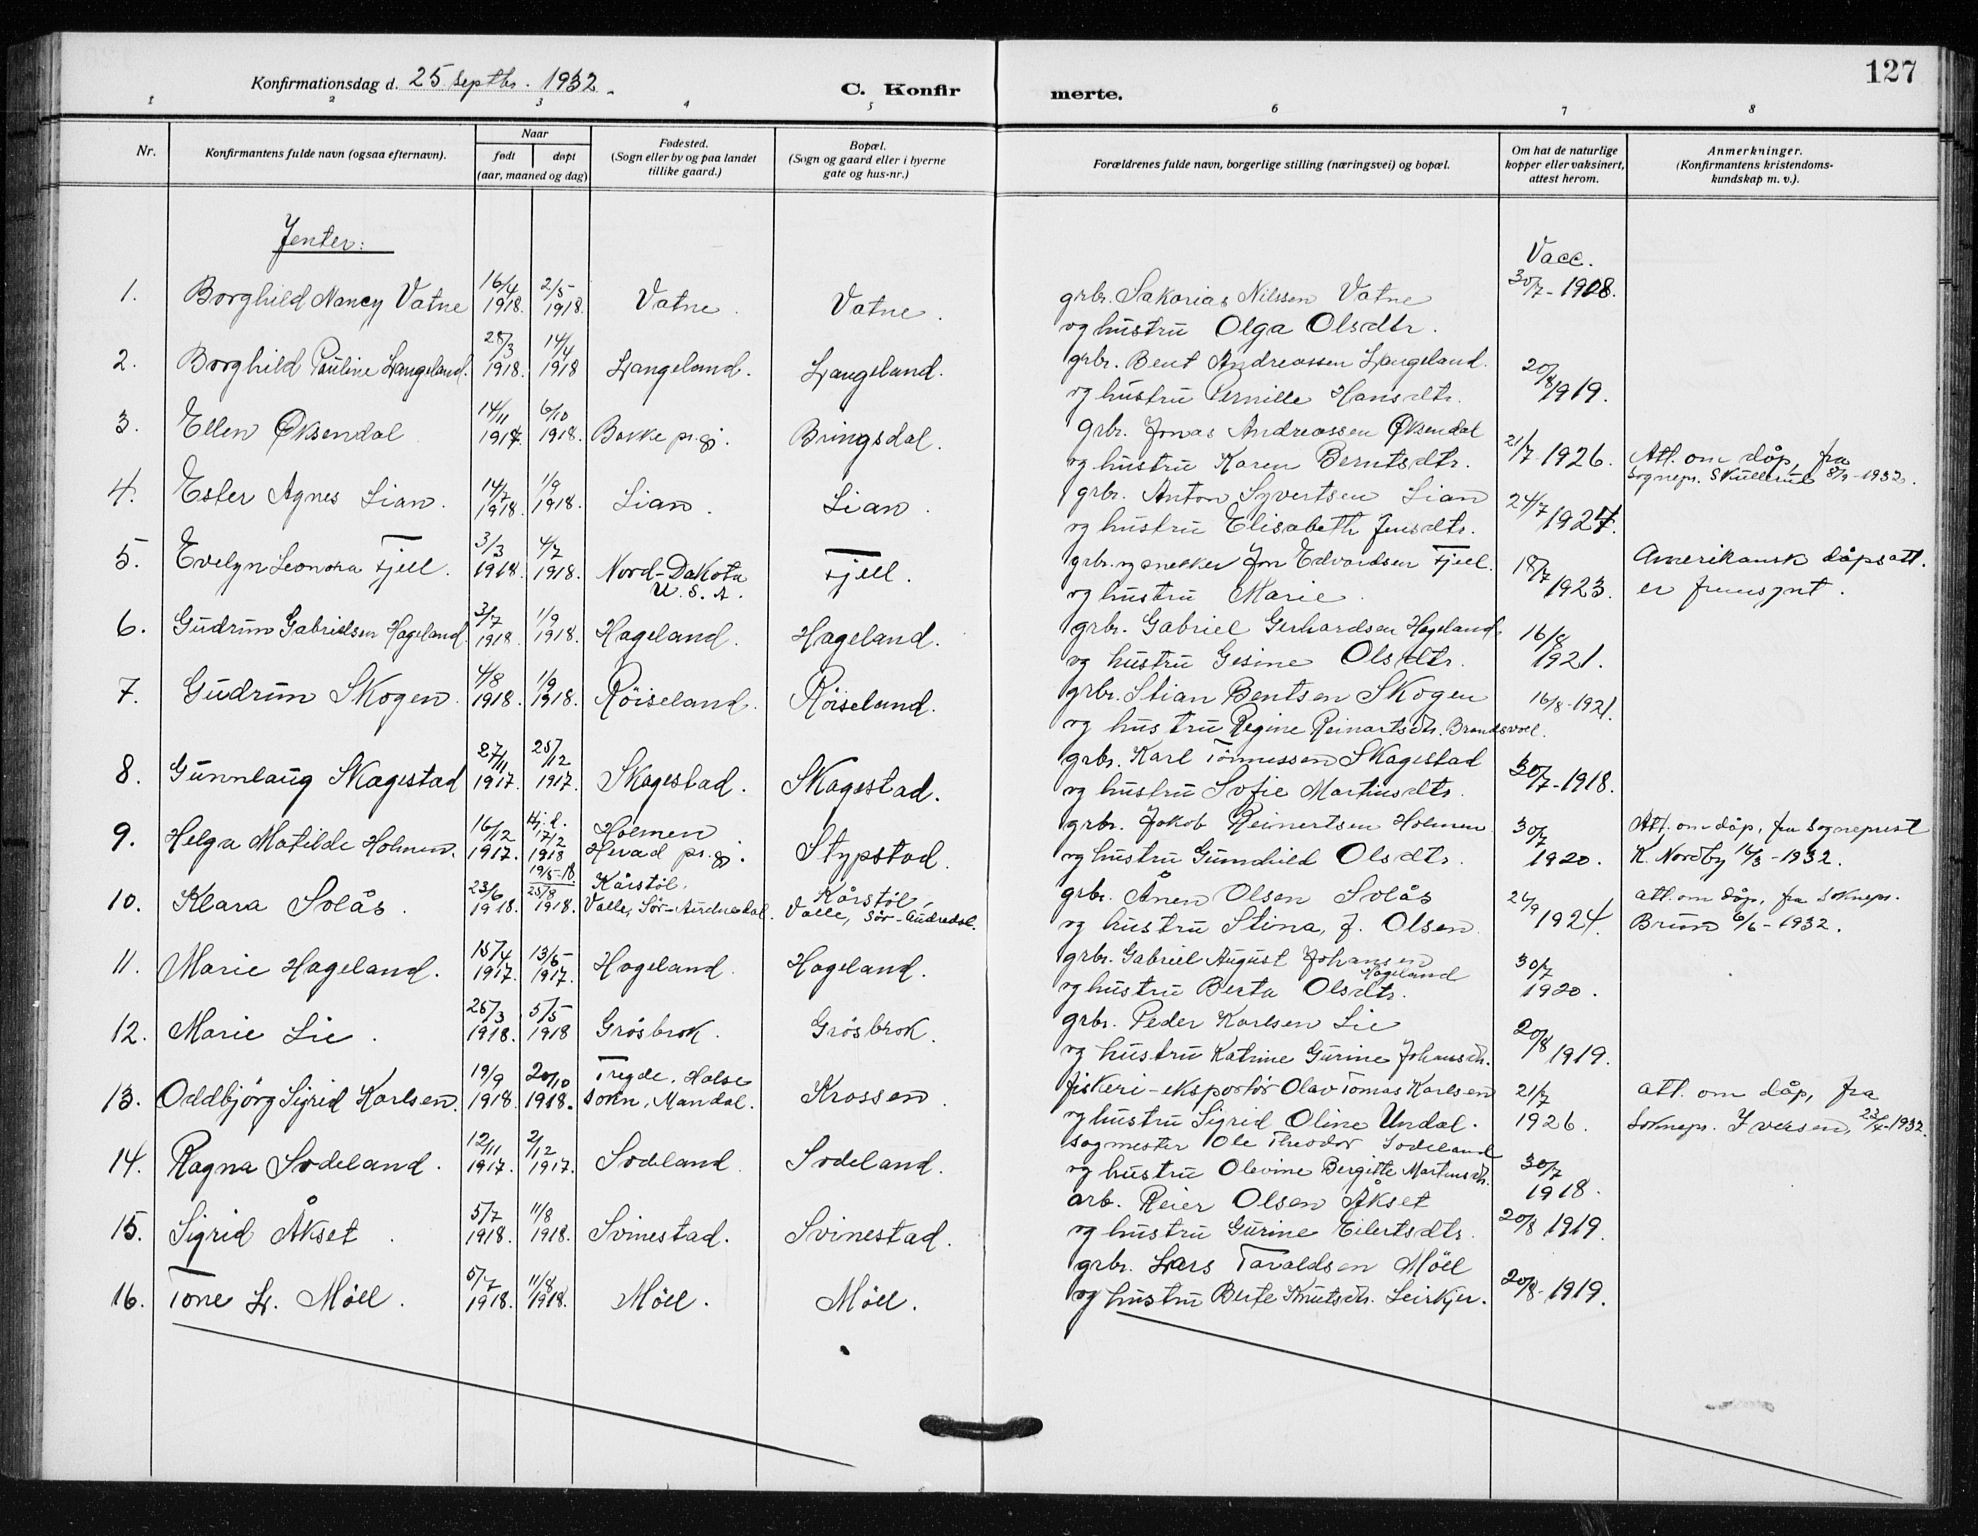 127
Konfirmationsdag d. 25 septbr. 1932.
C. Konfirmerte.
1 2 3 4 5 6 7 8
Nr.
Konfirmantens fulde navn (ogsaa efternavn).
Naar
født | døpt
(aar, maaned og dag)
Fødested.
(Sogn eller by og paa landet
tillike gaard.)
Bopæl.
(Sogn og gaard eller i byerne
gate og hus-nr.)
Forældrenes fulde navn, borgerlige stilling (næringsvei) og bopæl.
Om hat de naturlige
kopper eller vaksinert,
attest herom.
Anmerkninger.
(Konfirmantens kristendoms-
kundskap m. v.).
Jenter:
Vacc.
1. Borghild Nancy Vatne 16/4 1918. 2/5 1918. Vatne. Vatne. grbr. Sakarias Nilssen Vatne 30/7-1908.
og hustru Olga Olsdtr.
2. Borghild Pauline Langeland. 28/3 1918. 14/4 1918 Langeland. Langeland. grbr. Bent Andreassen Langeland. 20/8 1919.
og hustru Pernille Hansdtr.
3. Ellen Øksendal 14/11 1917. 6/10 1918. Bakke pr.gj. Bringsdal. grbr. Jonas Andreassen Øksendal
og hustru Karen Berntsdtr. 21/7-1926. Att. om dåp, fra
sognepr. Skullerud 8/9-1932.
4. Ester Agnes Lian. 14/7 1918. 1/9 1918. Lian. Lian. grbr. Anton Syvertsen Lian
og hustru Elisabeth Jensdtr. 24/7 1927.
5. Evelyn Leonora Fjell. 3/3 1918. 4/7 1918. Nord-Dakota Fjell. grbr. og snekker Jon Edvardsen Fjell. 18/7 1923. Amerikansk dåpsatt.
U.S.A. og hustru Marie. er fremsynt.
6. Gudrun Gabrielsen Hageland. 3/7 1918. 1/9 1918. Hageland. Hageland. grbr. Gabriel Gerhardsen Hageland 16/8 1921.
og hustru Gesine Olsdtr.
7. Gudrun Skogen 4/8 1918. 1/9 1918. Röiseland. Röiseland. grbr. Stian Bentsen Skogen 16/8-1921.
og hustru Regine Reinartsdtr. Brandsvol.
8. Gunnlaug Skagestad 27/11 1917. 25/12 1917. Skagestad. Skagestad. grbr. Karl Tönnessen Skagestad
og hustru Sofie Martinsdtr. 30/7-1918.
9. Helga Matilde Holmen. 16/12 1917. Hj.d. 17/2 1918 Holmen Stypstad. grbr. Jakob Reinertsen Holmen 30/7 1920. Att. om dåp, fra sogneprest
19/5-18. pr.gj. og hustru Gunnhild Olsdtr. K. Nordby 16/3-1932.
10. Klara Solås. 23/6 1918. 25/8 1918. Kårstöl, Kårstöl, grbr. Ånen Olsen Solås 26/9 1924. att. om dåp, fra sokнepr.
Valle, Sör-Audnedal. Valle, Sör-Audnedal. og hustru Stina, f. Olsen. Brun 6/6-1932.
11. Marie Hageland. 15/4 1917. 13/5 1917. Hageland. Hageland. grbr. Gabriel August Johansen Hageland 30/7 1920.
og hustru Berta Olsdtr.
12. Marie Lie. 25/3 1918. 5/5 1918 Grösbrok. Grösbrok. grbr. Peder Karlsen Lie 20/8 1919.
og hustru Katrine Gurine Johansdtr.
13. Oddbjörg Sigrid Karlsen. 19/9 1918. 20/10 1918. Tregde, Halse Krossen. fiskeri-eksportör Olav Tomas Karlsen 21/7 1926. att. om dåp, fra
sokn, Mandal. og hustru Sigrid Oline Undal. Soknepr. Iversen, 23/4-1932.
14. Ragna Sodeland. 12/11 1917. 2/12 1917. Sodeland. Sodeland. sagmester Ole Theodor Sodeland 30/7 1918.
og hustru Olevine Bergitte Martinsdtr.
15. Sigrid Åkset. 5/7 1918. 11/8 1918. Svinestad. Svinestad. arb. Reier Olsen Åkset 20/8 1919.
og hustru Gurine Eilertsdtr.
16. Tone L. Möll. 5/7 1918. 11/8 1918. Möll. Möll. grbr. Lars Tavaldsen Möll 20/8-1919.
og hustru Berte Knutsdtr. Leirkjer.